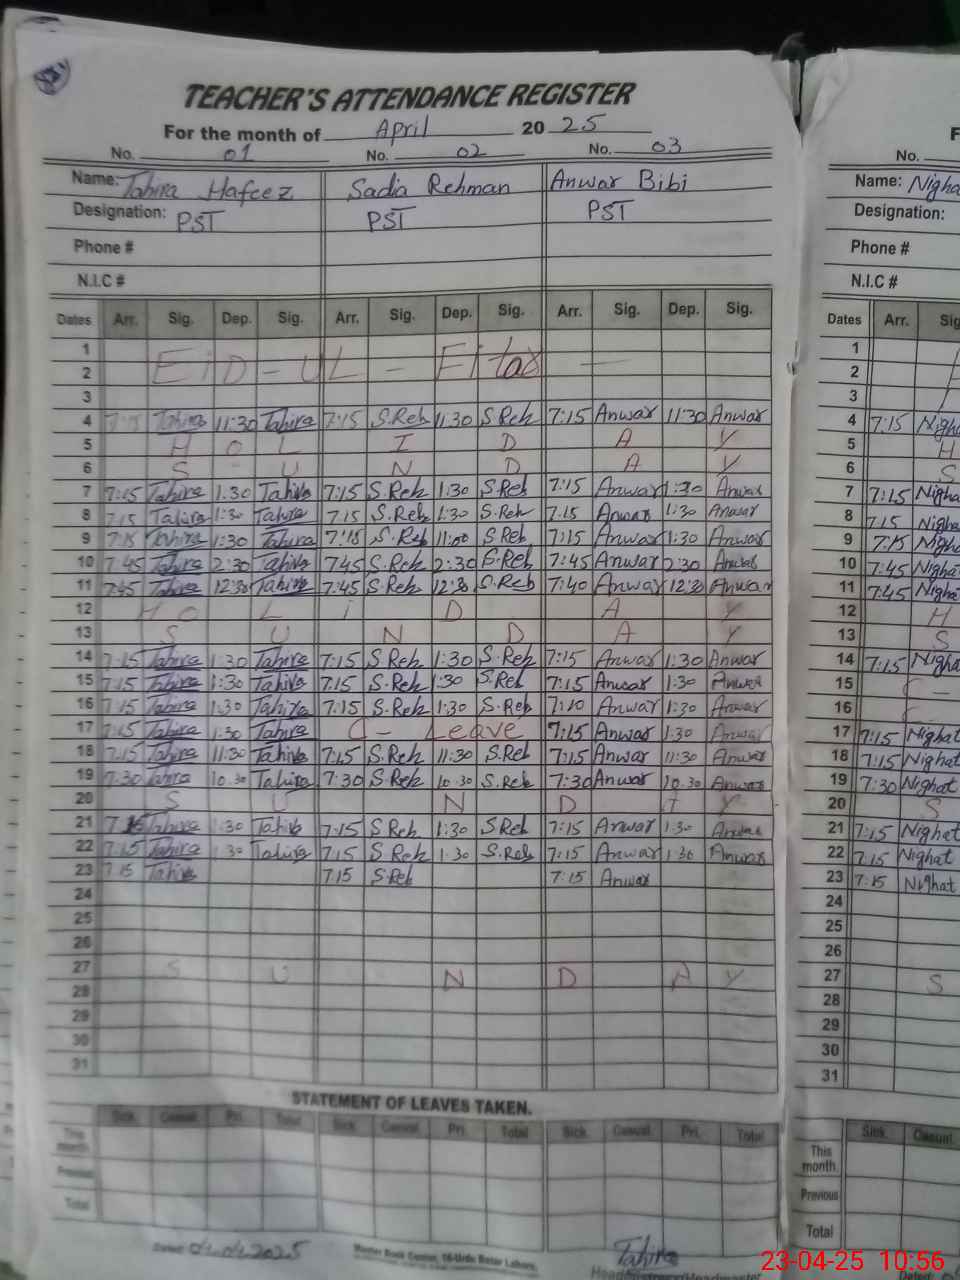 TEACHER'S ATTENDANCE REGISTER
For the month of April 2025
No. 01 No. 02 No. 03
Name: Tahira Hafeez Sadia Rehman Anwar Bibi
Designation: PST PST PST
Phone #
N.I.C #
Dates Arr. Sig. Dep. Sig. Arr. Sig. Dep. Sig. Arr. Sig. Dep. Sig.
1
EiD - UL - Fitar
2
3
4 7:15 Tahira 11:30 Tahira 7:15 S.Reh 11:30 S.Reh 7:15 Anwar 11:30 Anwar
5 H O L I D A Y
6 S U N D A Y
7 7:15 Tahira 1:30 Tahira 7:15 S.Reh 1:30 S.Reh 7:15 Anwar 1:30 Anwar
8 7:15 Tahira 1:30 Tahira 7:15 S.Reh 1:30 S.Reh 7:15 Anwar 1:30 Anwar
9 7:15 Tahira 1:30 Tahira 7:15 S.Reh 11:00 S.Reh 7:15 Anwar 1:30 Anwar
10 7:45 Tahira 2:30 Tahira 7:45 S.Reh 2:30 S.Reh 7:45 Anwar 2:30 Anwar
11 7:45 Tahira 12:30 Tahira 7:45 S.Reh 12:30 S.Reh 7:40 Anwar 12:30 Anwar
12 H O L i D A Y
13 S U N D A Y
14 7:15 Tahira 1:30 Tahira 7:15 S.Reh 1:30 S.Reh 7:15 Anwar 1:30 Anwar
15 7:15 Tahira 1:30 Tahira 7:15 S.Reh 1:30 S.Reh 7:15 Anwar 1:30 Anwar
16 7:15 Tahira 1:30 Tahira 7:15 S.Reh 1:30 S.Reh 7:10 Anwar 1:30 Anwar
17 7:15 Tahira 1:30 Tahira C - Leave 7:15 Anwar 1:30 Anwar
18 7:15 Tahira 11:30 Tahira 7:15 S.Reh 11:30 S.Reh 7:15 Anwar 11:30 Anwar
19 7:30 Tahira 10.30 Tahira 7:30 S.Reh 10.30 S.Reh 7:30 Anwar 10.30 Anwar
20 S U N D A Y
21 7:15 Tahira 1:30 Tahira 7:15 S.Reh 1:30 S.Reh 7:15 Anwar 1:30 Anwar
22 7:15 Tahira 1:30 Tahira 7:15 S.Reh 1:30 S.Reh 7:15 Anwar 1:30 Anwar
23 7:15 Tahira 7:15 S.Reh 7:15 Anwar
24
25
26
27 S U N D A Y
28
29
30
31
STATEMENT OF LEAVES TAKEN.
Sick Casual Pri. Total Sick Casual Pri. Total Sick Casual Pri. Total
This month
Previous
Total
Dated: 04.04.2025
Master Book Center, 16-Urdu Bazar Lahore.
Tahira
No.
Name: Nigha
Designation:
Phone #
N.I.C #
Dates Arr. Sig
1
2
3
4 7:15 Nigha
5 H
6 S
7 7:15 Nigha
8 7:15 Nigha
9 7:15 Nigha
10 7:45 Nigha
11 7:45 Nigha
12 H
13 S
14 7:15 Nigha
15 C -
16 C
17 7:15 Nighat
18 7:15 Nighat
19 7:30 Nighat
20 S
21 7:15 Nighat
22 7:15 Nighat
23 7:15 Nighat
24
25
26
27 S
28
29
30
31
Sick Casual
This month
Previous
Total
23-04-25 10:56